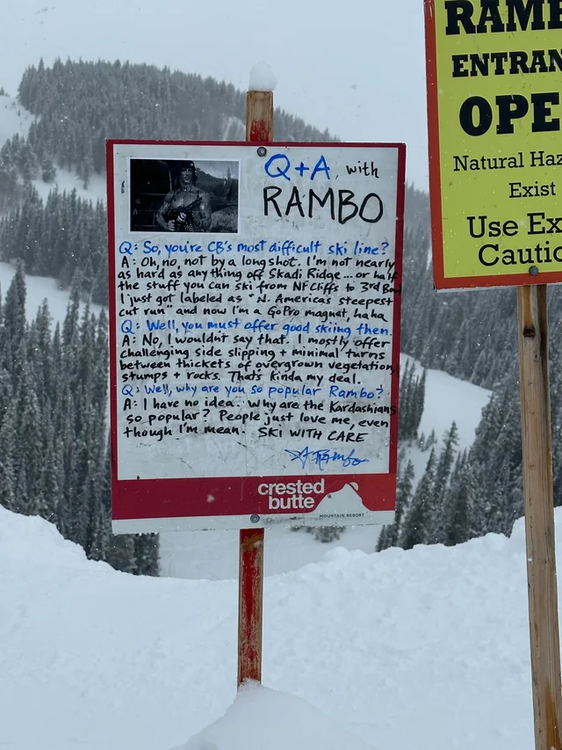 Q+A, with
RAMBO
Q: So, you're CB's most difficult ski line?
A: Oh, no, not by a longshot. I'm not nearly
as hard as anything off Skadi Ridge... or half
the stuff you can ski from NF Cliffs to 3rd Bowl
I just got labeled as "N. America's steepest
cut run" and now I'm a GoPro magnet, haha
Q: Well, you must offer good skiing then.
A: No, I wouldn't say that. I mostly offer
challenging side slipping + minimal turns
between thickets of overgrown vegetation,
stumps + rocks. That's kinda my deal.
Q: Well, why are you so popular Rambo?
A: I have no idea. Why are the Kardashians
so popular? People just love me, even
though I'm mean. SKI WITH CARE
Rambo
crested
butte
MOUNTAIN RESORT
RAMB
ENTRAN
OPE
Natural Haz
Exist
Use Ex
Cautio